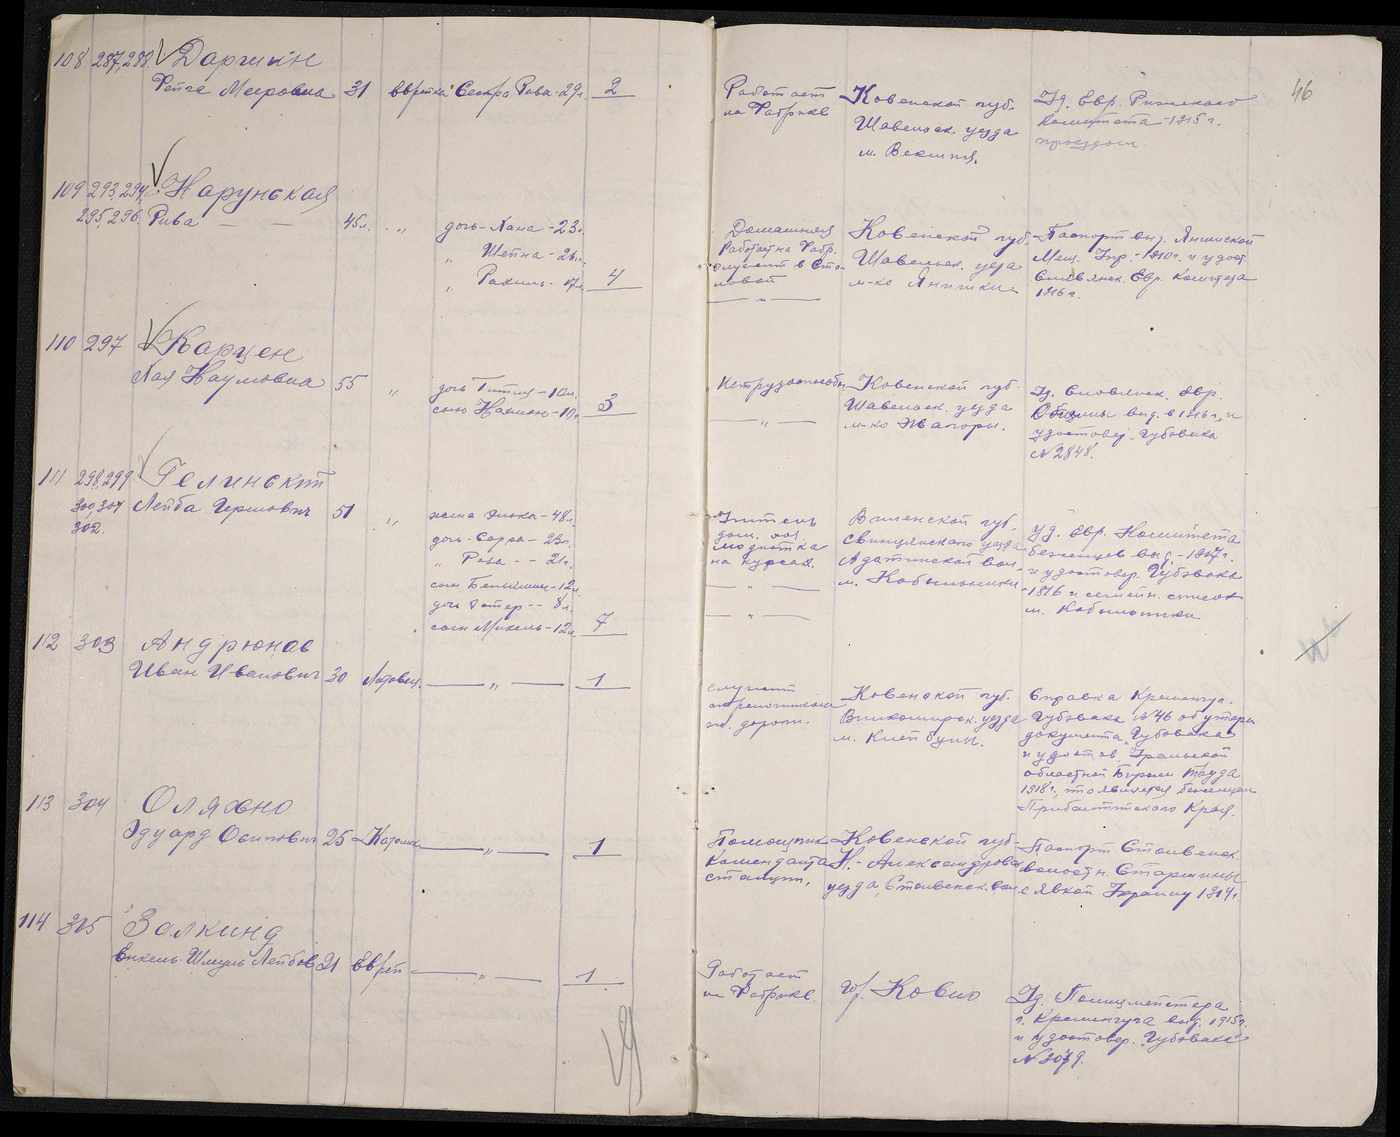 46
108 287,288. Даргин
Фейга Мееровна 31 еврейка Сестра Рива - 29 л. 2
Работает на фабрике
Ковенской губ. Шавельск. уезда м. Векшня.
Уд. Евр. Рижского Комитета - 1915 г.
109 293,294, Нарунская
295,296. Рива — — 45 л. „ дочь - Хана - 23 л.
„ Шейна -
„ Рахиль - 17 л. 4
Домашняя
Работ. на Фабр.
служит в Сто-
ловой
— „ —
Ковенской губ.
Шавельск. уезда
м-ко Янишки
Паспорт выд. Янишской
Мещ. Упр. - 1910 г. и удост.
Евр. Комитета
1916 г.
110 297 Карцен
Хая Наумовна 55 „ дочь - 10 л.
сын - 10 л. 3
Нетрудоспособн.
— „ —
Ковенской губ.
Шавельск. уезда
м-ко Жагоры.
Уд. Евр.
Общины выд. в 1916 г. и
удостовер. Губэвака
№ 2848.
111 298,299 Гелинский
300,301 Лейба Гершович 51 „ жена - 48 л.
302. дочь - Сарра - 23 л.
„ Роза - - 21 л.
сын - 12 л.
дочь Эстер - - 8 л.
сын - 12 л. 7
Учитель
дом. хоз.
модистка
на курсах.
— „ —
— „ —
Виленской губ.
Свенцянского уезда
вол.
м. Кобыльники
Уд. Евр. Комитета
беженцев выд. - 1917 г.
и удостовер. Губэвака
- 1916 и семейн. список
м. Кобыльники
112 303 Андрюнас
Иван Иванович 30 Литовец — „ — 1
служит
на железной
ж. дороги.
Ковенской губ.
Вилкомирск. уезда
м.
Справка Кременчуг.
Губэвака № 46 об утери
документа. Губэвака
и удостов. Уральской
областной Биржи Труда
1918 г., что является беженцем
Прибалтийского Края.
113 304 Оляхно
Эдуард Осипович 25 Католик — „ — 1
Помощник
Коменданта
станции,
Ковенской губ.
Н.-Александровск.
уезда, вол.
Паспорт
волостн. Старшины
с явкой 1914 г.
114 305 Залкинд
Енхель-Шмуль Лейбов. 21 Еврей — „ — 1
Работает
на Фабрике
гор. Ковно
Уд. Полицмейстера
г. Кременчуга выд. 1915 г.
и удостовер. Губэвака
№ 3079.
19